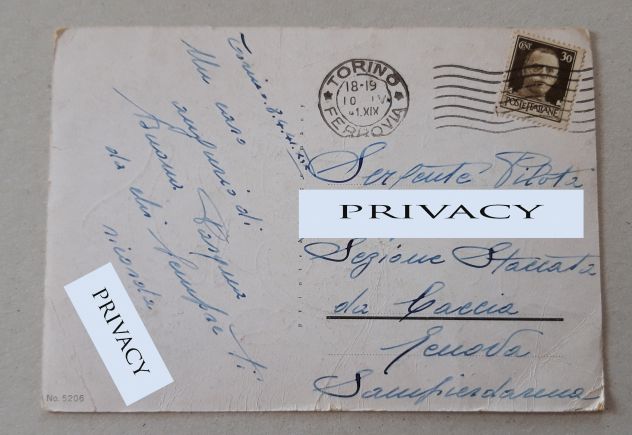 Torino. 8.4.41.XIX
Un caro
augurio di
Buona Pasqua
da chi sempre ti
ricorda
PRIVACY
No. 5206
TORINO
18-19
10 IV
41.XIX
FERROVIA
CENT. 30
POSTE ITALIANE
Sergente Pilota
PRIVACY
Sezione Staccata
da Caccia
Genova
Sampierdarena